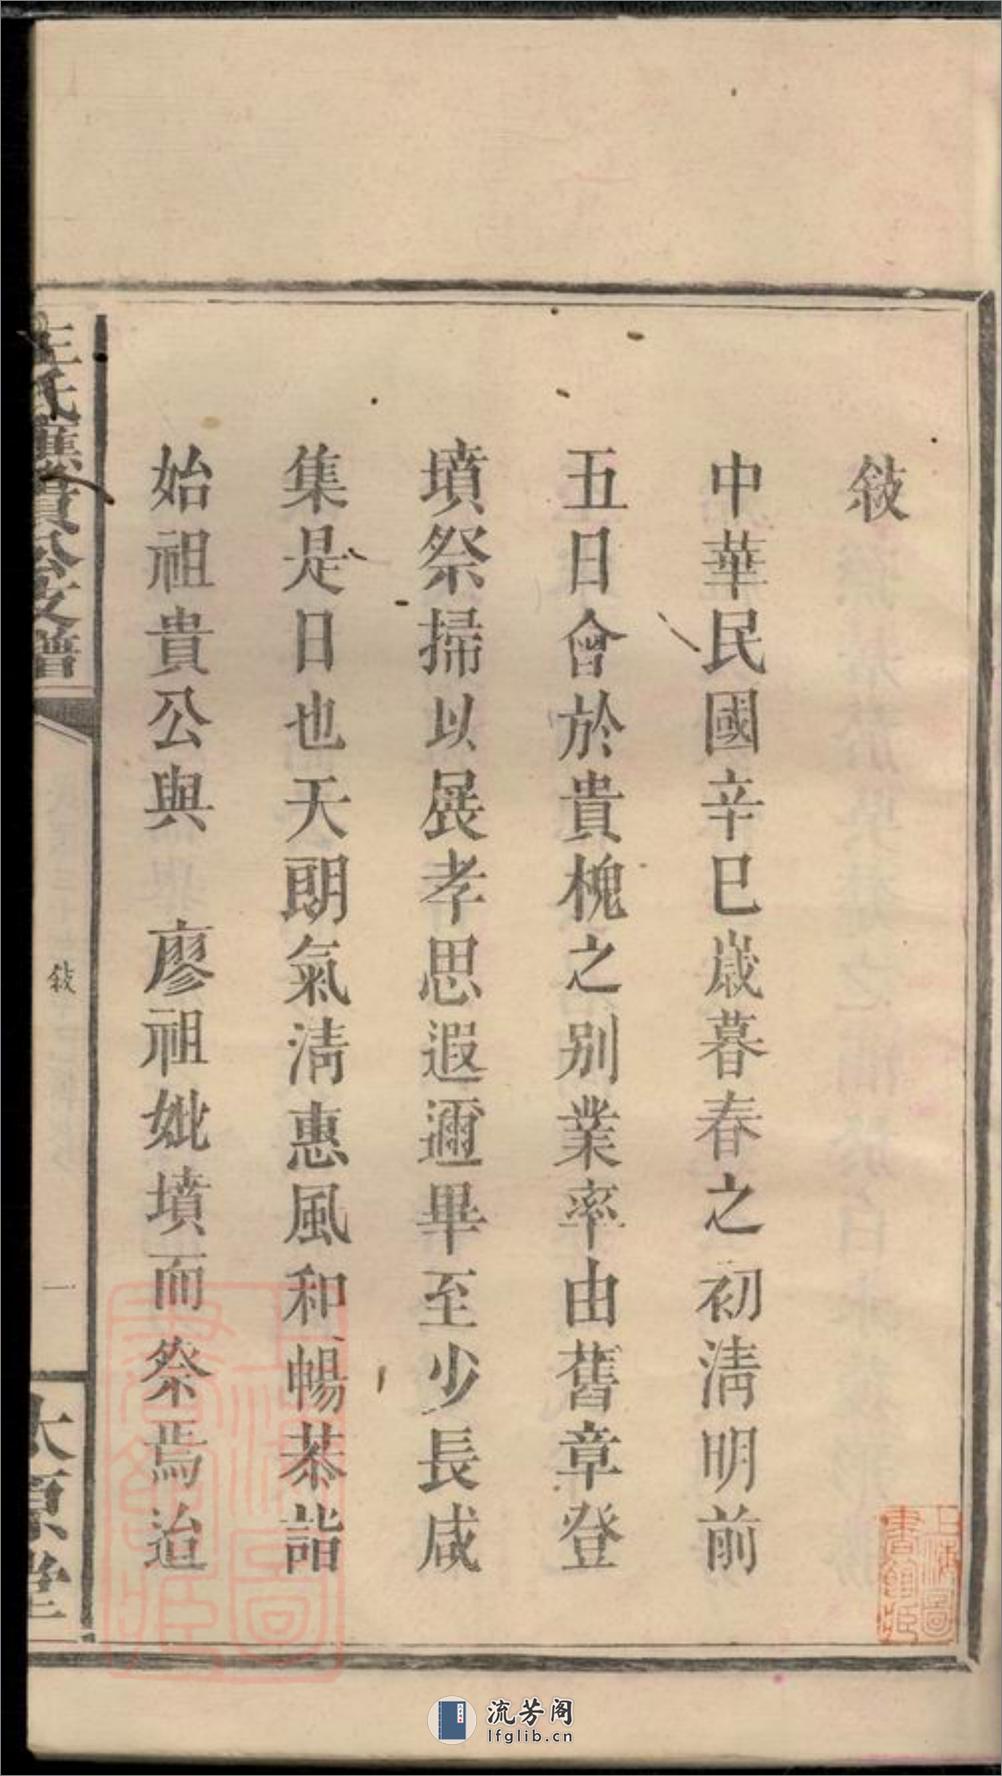 敍
中華民國辛巳歲暮春之初淸明前
五日會於貴槐之別業率由舊章登
墳祭掃以展孝思遐邇畢至少長咸
集是日也天朗氣淸惠風和暢恭詣
始祖貴公與　廖祖妣墳而祭焉迨
王氏貴公支譜
敍
一
太原堂
上海圖書館藏
流芳阁
lfglib.cn